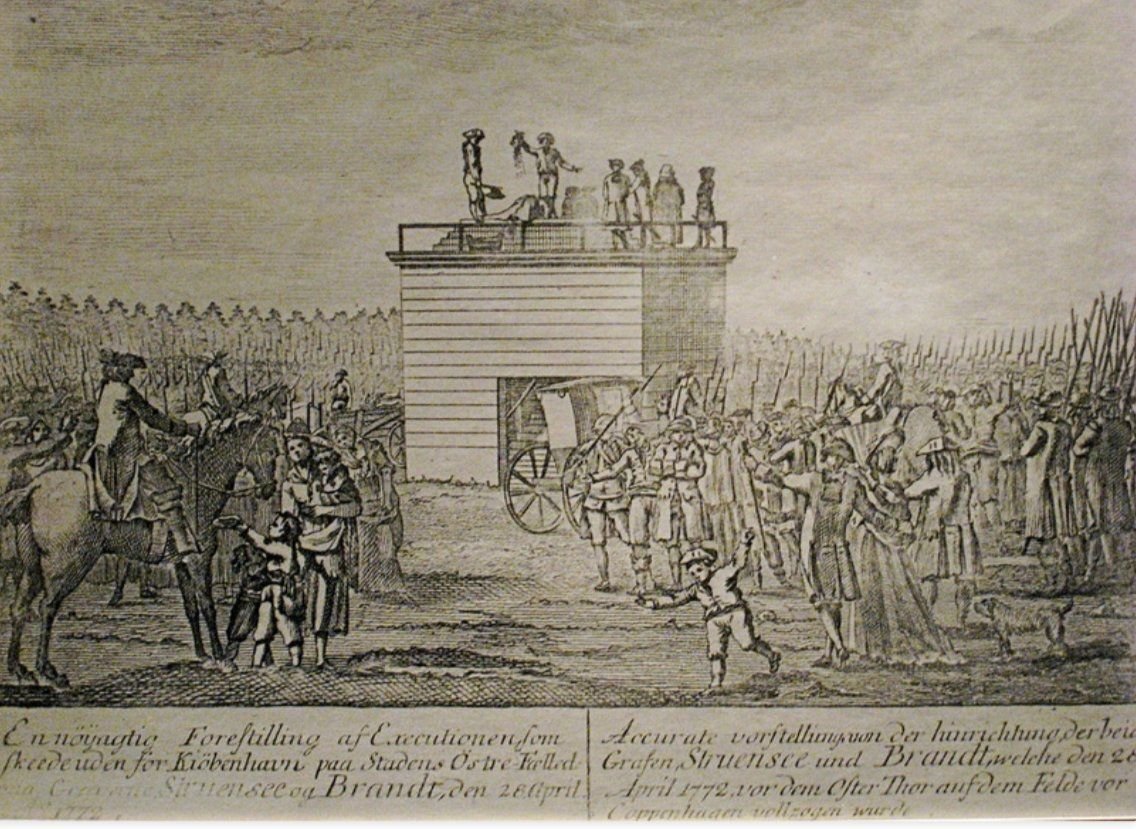 En nöÿagtig Forestilling af Executionen, som
skeede uden for Kiöbenhavn paa Stadens Östre Fælled
Greverne Struensee og Brandt, den 28 April
1772.
Accurate vorstellung von der hinrichtung, der beid
Grafen, Struensee und Brandt, welche den 28
April 1772, vor dem Oster Thor auf dem Felde vor
Coppenhagen vollzogen wurde